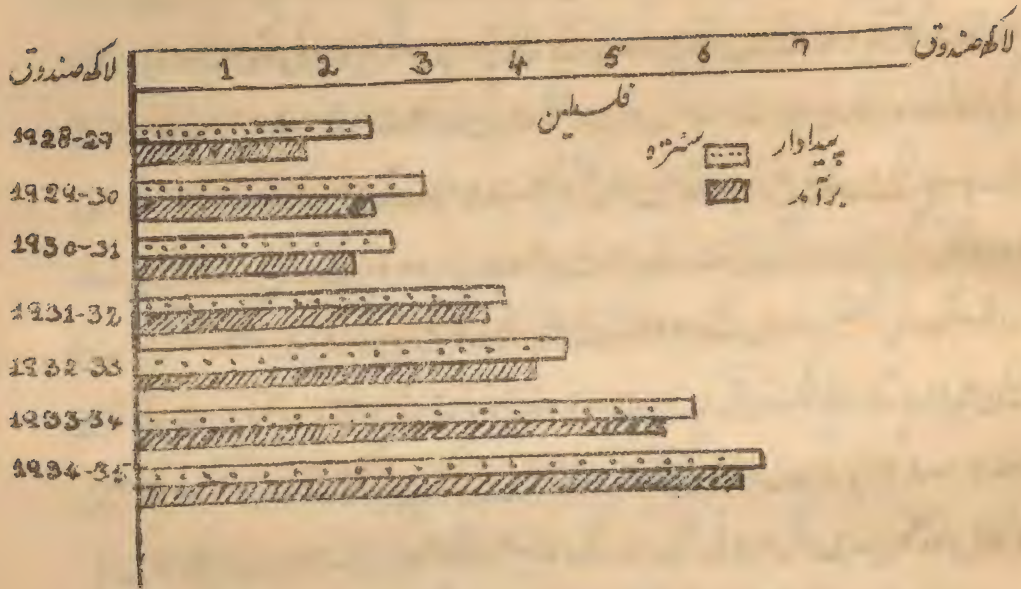 لاکھ صندوق 1 2 3 4 5 6 7 لاکھ صندوق
فلسطین
پیداوار سنترہ
برآمد
1928-29
1929-30
1930-31
1931-32
1932-33
1933-34
1934-35